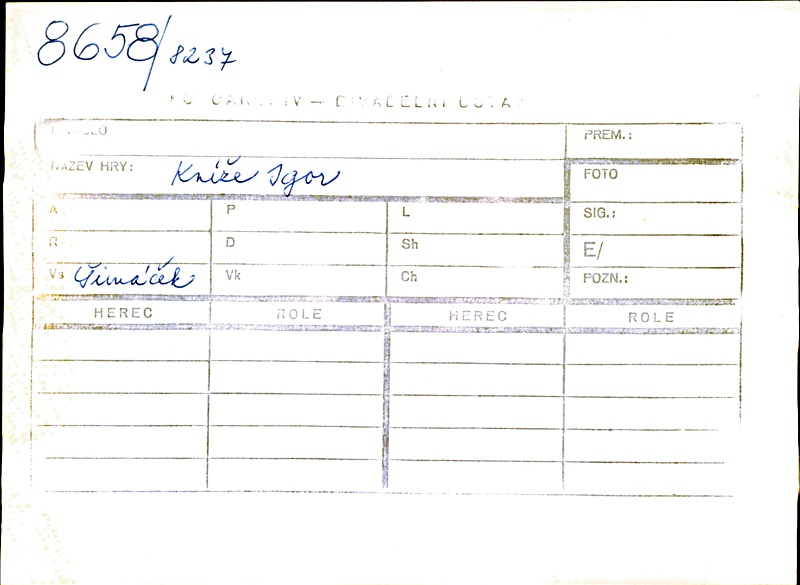 8658/8237
FOTOARCHIV — DIVADELNÍ ÚSTAV
DIVADLO PREM.:
NÁZEV HRY: Kníže Igor FOTO
A P L SIG.:
R D Sh E/
Vs Šimáček Vk Ch POZN.:
HEREC ROLE HEREC ROLE